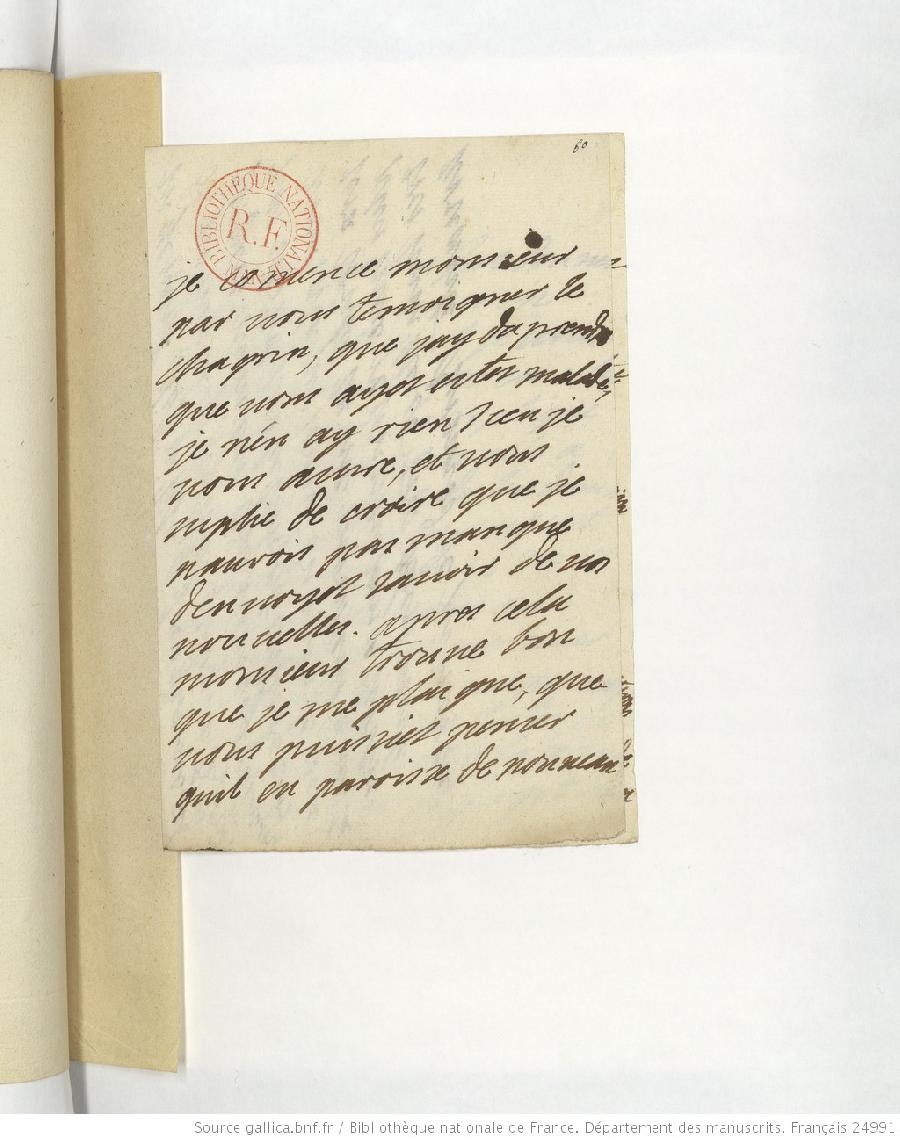 60
BIBLIOTHEQUE NATIONALE
R.F.
je comence monsieur
par vous temoigner le
chagrin, que jay daprendre
que vous ayez estes malade,
je nén ay rien sceu je
vous assure, et vous
suplie de croire que je
naurois pas manque
denvoyer savoir de vos
nouvelles. apres cela
monsieur trouve bon
que je me plaigne, que
vous puissiez penser
quil en paroisse de nouveau
Source gallica.bnf.fr / Bibliothèque nationale de France. Département des manuscrits. Français 24991